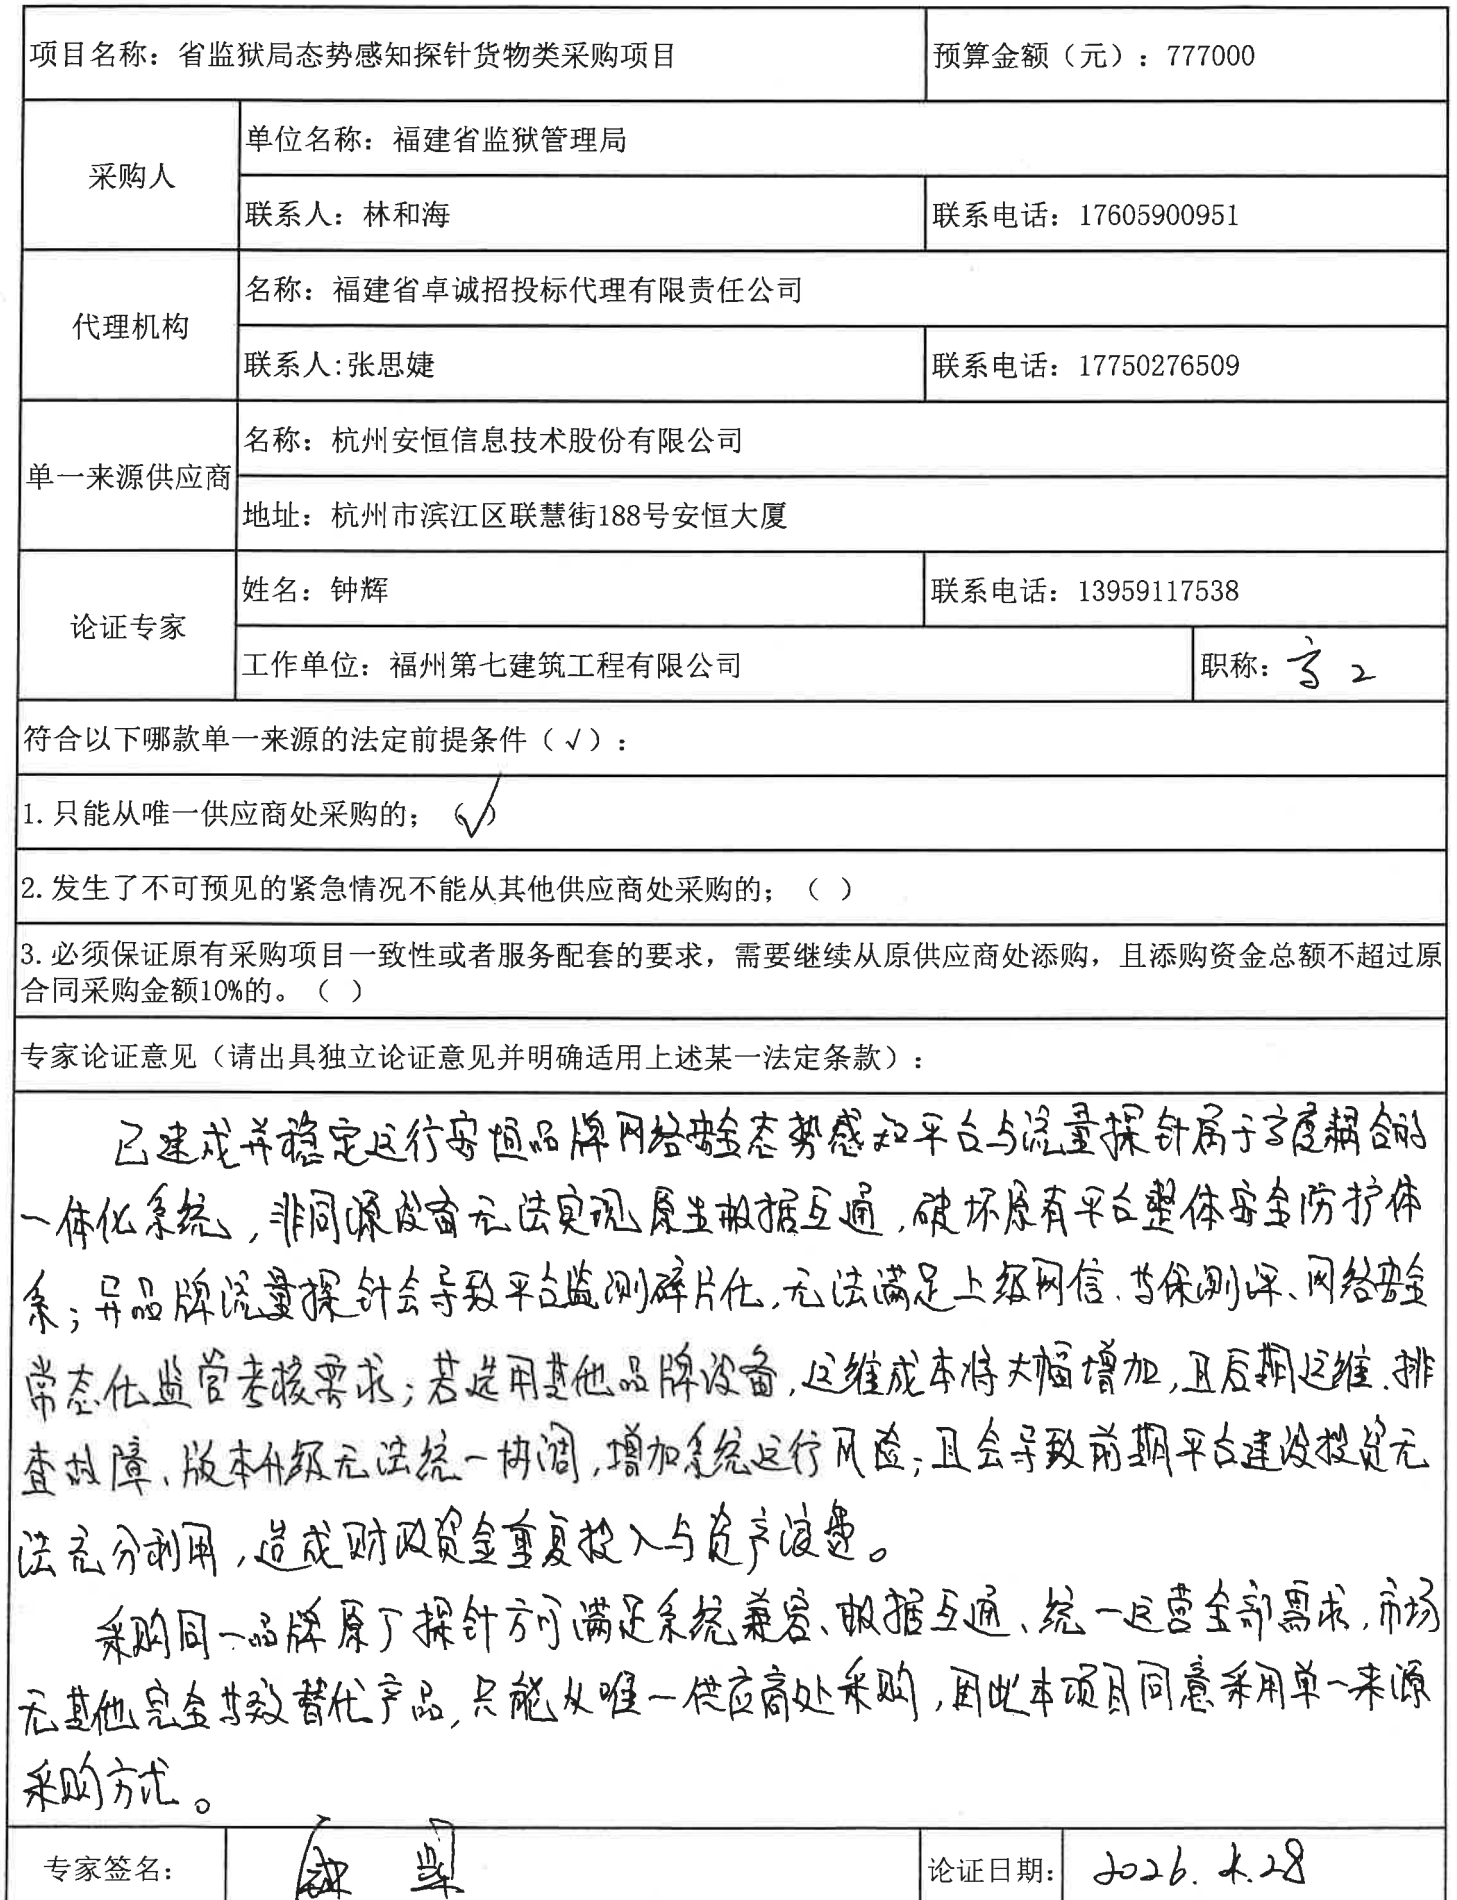 项目名称：省监狱局态势感知探针货物类采购项目
预算金额（元）：777000
采购人
单位名称：福建省监狱管理局
联系人：林和海
联系电话：17605900951
代理机构
名称：福建省卓诚招投标代理有限责任公司
联系人:张思婕
联系电话：17750276509
单一来源供应商
名称：杭州安恒信息技术股份有限公司
地址：杭州市滨江区联慧街188号安恒大厦
论证专家
姓名：钟辉
联系电话：13959117538
工作单位：福州第七建筑工程有限公司
职称：高工
符合以下哪款单一来源的法定前提条件（√）：
1.只能从唯一供应商处采购的；（√）
2.发生了不可预见的紧急情况不能从其他供应商处采购的；（ ）
3.必须保证原有采购项目一致性或者服务配套的要求，需要继续从原供应商处添购，且添购资金总额不超过原
合同采购金额10%的。（ ）
专家论证意见（请出具独立论证意见并明确适用上述某一法定条款）：
已建成并稳定运行安恒品牌网络安全态势感知平台与流量探针属于高度耦合的
一体化系统，非同源设备无法实现原生数据互通，破坏原有平台整体安全防护体
系；异品牌流量探针会导致平台监测碎片化，无法满足上级网信、等保测评、网络安全
常态化监管考核需求；若选用其他品牌设备，运维成本将大幅增加，且后期运维、排
查故障、版本升级无法统一协调，增加系统运行风险；且会导致前期平台建设投资无
法充分利用，造成财政资金重复投入与资产浪费。
采购同一品牌原厂探针方可满足系统兼容、数据互通、统一运营全部需求，市场
无其他完全等效替代产品，只能从唯一供应商处采购，因此本项目同意采用单一来源
采购方式。
专家签名：
论证日期：
2026.4.28